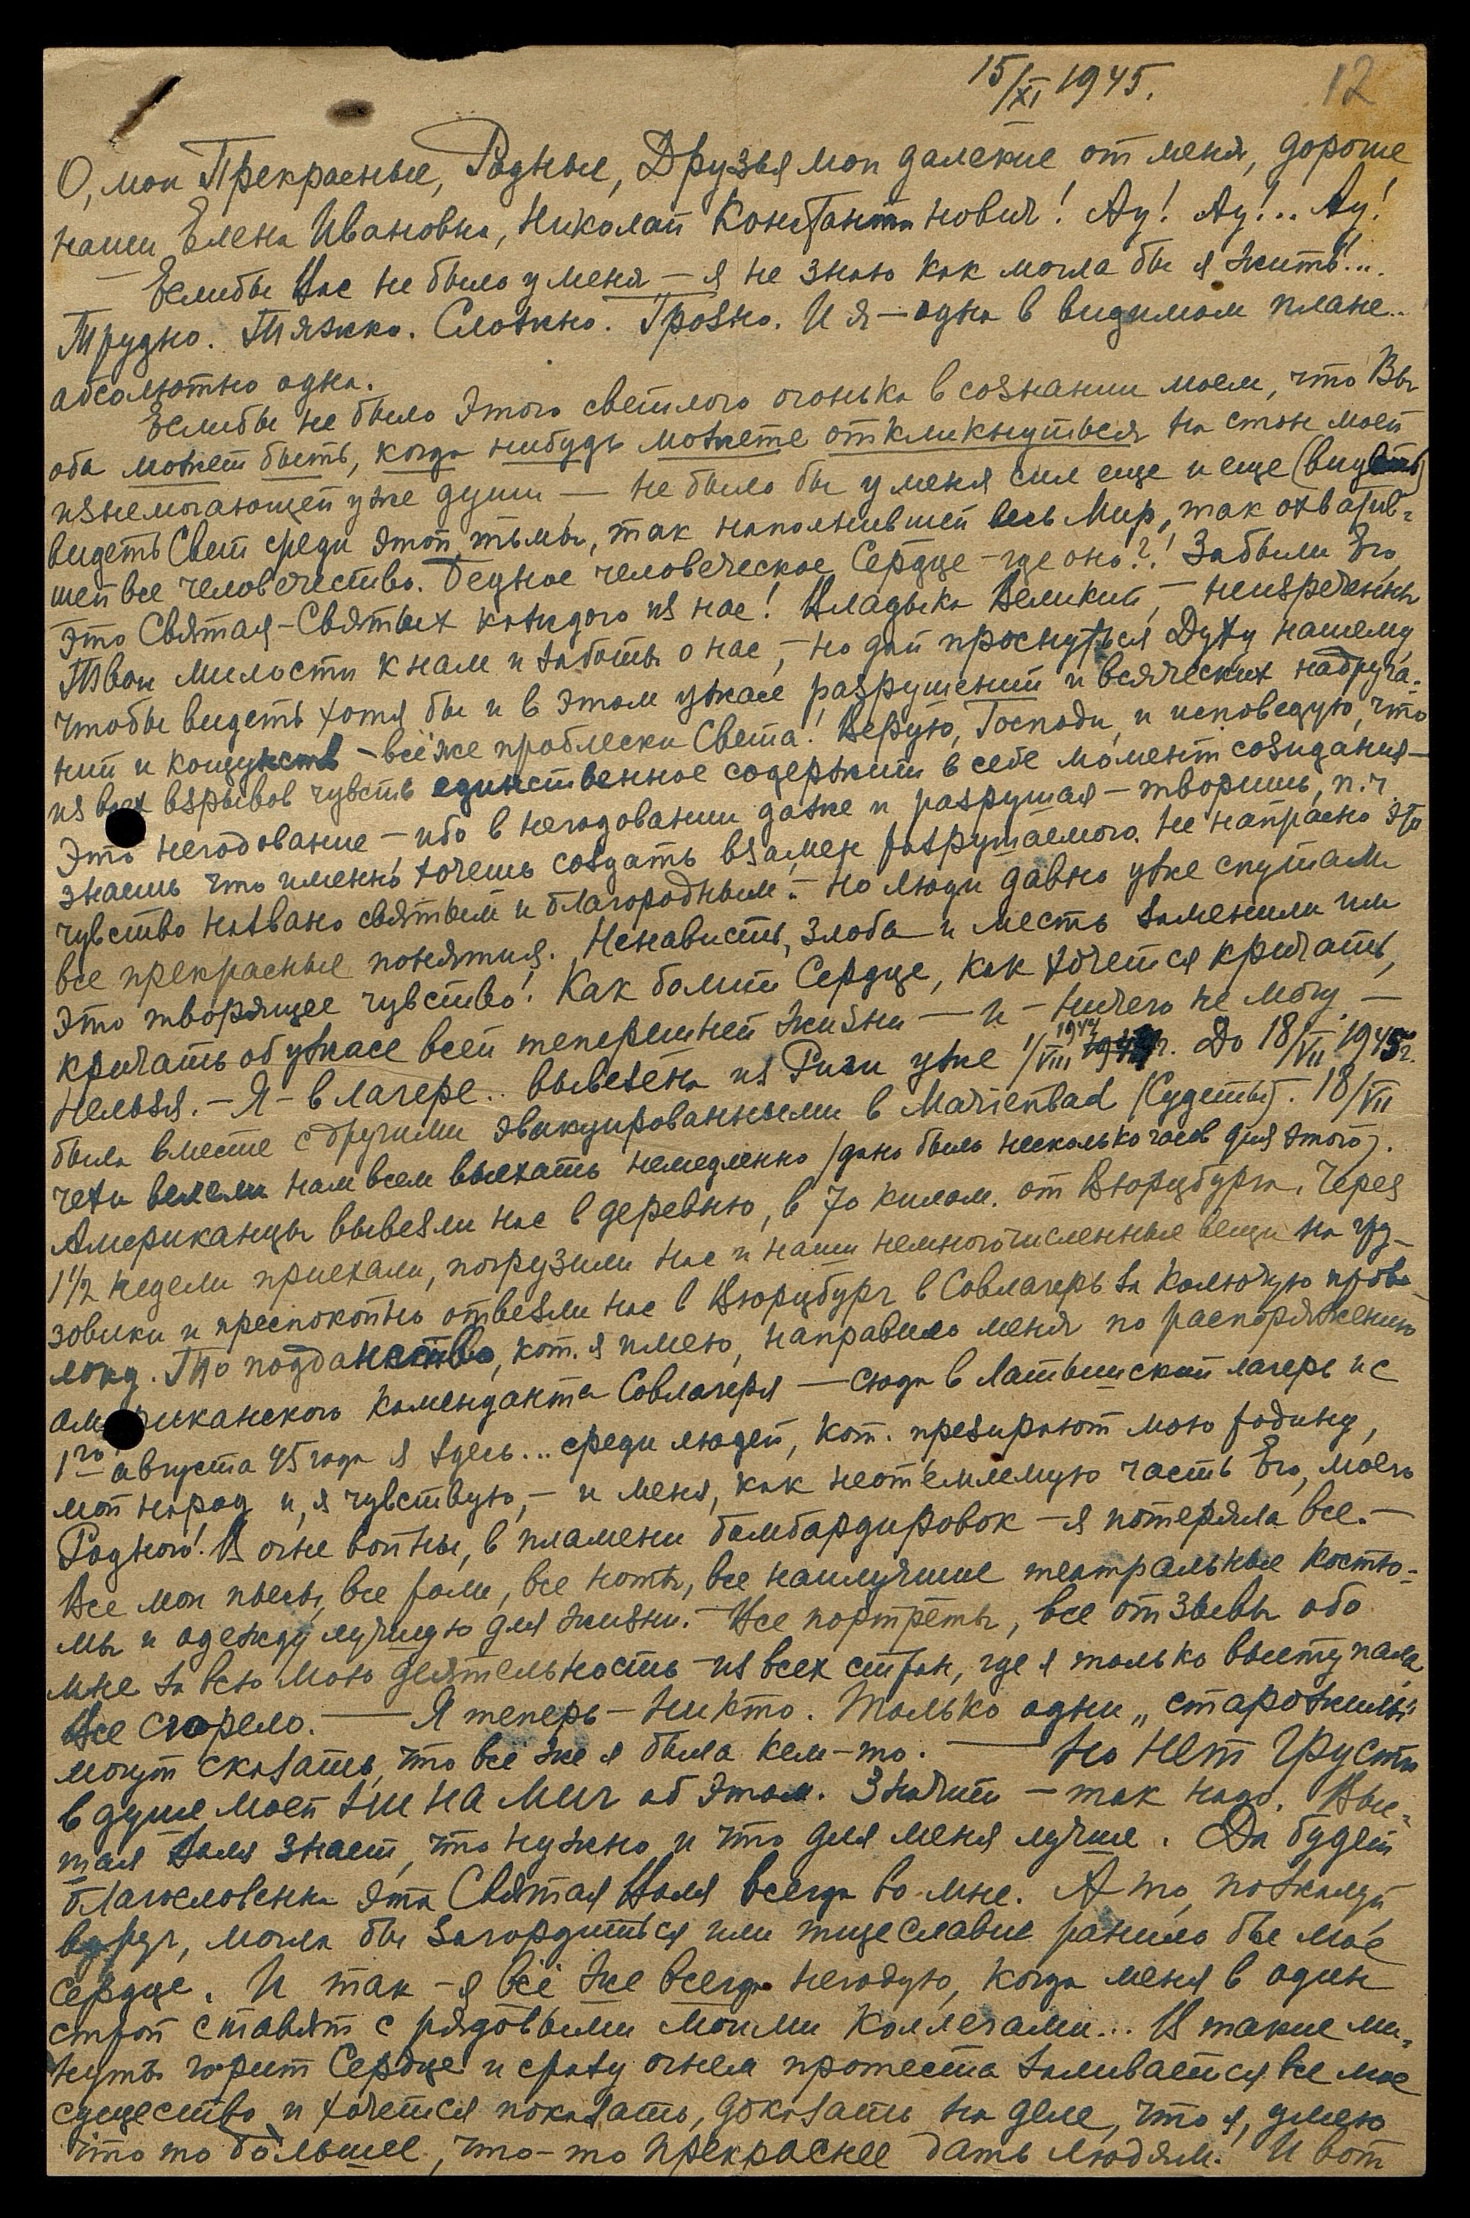 15/XI 1945.
12
О, мои Прекрасные, Родные, Друзья мои далекие от меня, дорогие
наши Елена Ивановна, Николай Константинович! Ау! Ау!.. Ау!
— Еслибы Вас не было у меня — я не знаю как могла бы я жить!...
Трудно. Тяжко. Сложно. Грозно. И я — одна в видимом плане..
абсолютно одна.
Еслибы не было этого светлого огонька в сознании моем, что Вы
оба может быть, когда нибудь можете откликнуться на стон моей
изнемогающей уже души — не было бы у меня сил еще и еще (видеть)
видеть Свет среди этой тьмы, так наполнившей весь Мир, так охватив-
шей все человечество. Бедное человеческое Сердце — где оно?! Забыли Его,
это Святая-Святых каждого из нас! Владыка Великий, — неизреченны
Твои милости к нам и заботы о нас, — но дай проснуться Духу нашему,
чтобы видеть хотя бы и в этом ужасе разрушений и всяческих надруга-
ний и кощунств — всё же проблески Света! Верую, Господи, и исповедую, что
из всех взрывов чувств единственное содержит в себе момент созидания —
Это негодование — ибо в негодовании даже и разрушая — творишь, п.ч.
знаешь что именно хочешь создать взамен разрушаемого. Не напрасно это
чувство названо святым и благородным. — Но люди давно уже спутали
все прекрасные понятия. Ненависть, злоба и месть заменили им
это творящее чувство! Как болит Сердце, как хочется кричать,
кричать об ужасе всей теперешней жизни — и — ничего не могу —
нельзя. — Я — в лагере.. вывезена из Риги уже 1/VIII 1944 г. До 18/VII 1945 г.
была вместе с другими эвакуированными в Marienbad (Судеты). 18/VII
чехи велели нам всем выехать немедленно (дано было несколько часов для этого).
Американцы вывезли нас в деревню, в 70 килом. от Вюрцбурга. Через
1 1/2 недели приехали, погрузили нас и наши немногочисленные вещи на гру-
зовики и преспокойно отвезли нас в Вюрцбург в Совлагерь за колючую прово-
локу. То подданство, кот. я имею, направило меня по распоряжению
американского коменданта Совлагеря — сюда в Латышский лагерь и с
1го августа 45 года я здесь... среди людей, кот. презирают мою родину,
мой народ и, я чувствую, — и меня, как неотъемлемую часть Его, моего
Родного! В огне войны, в пламени бомбардировок — я потеряла все. —
Все мои пьесы, все роли, все ноты, все наилучшие театральные костю-
мы и одежду лучшую для жизни. — Все портреты, все отзывы обо
мне за всю мою деятельность — из всех стран, где я только выступала,
Все сгорело. — Я теперь — никто. Только одни „старожилы"
могут сказать, что все же я была кем-то. — Но нет грусти
в душе моей ни на миг об этом. Значит — так надо. Выс-
шая Воля знает, что нужно и что для меня лучше. Да будет
благословенна эта Святая Воля всегда во мне. А то, пожалуй,
вдруг, могла бы загордиться или тщеславие ранило бы мое
сердце. И так — я всё же всегда негодую, когда меня в один
строй ставят с рядовыми моими коллегами... В такие ми-
нуты горит Сердце и сразу огнем протеста заливается все мое
существо и хочется показать, доказать на деле, что я, умею
что то большее, что-то прекраснее дать людям. И вот